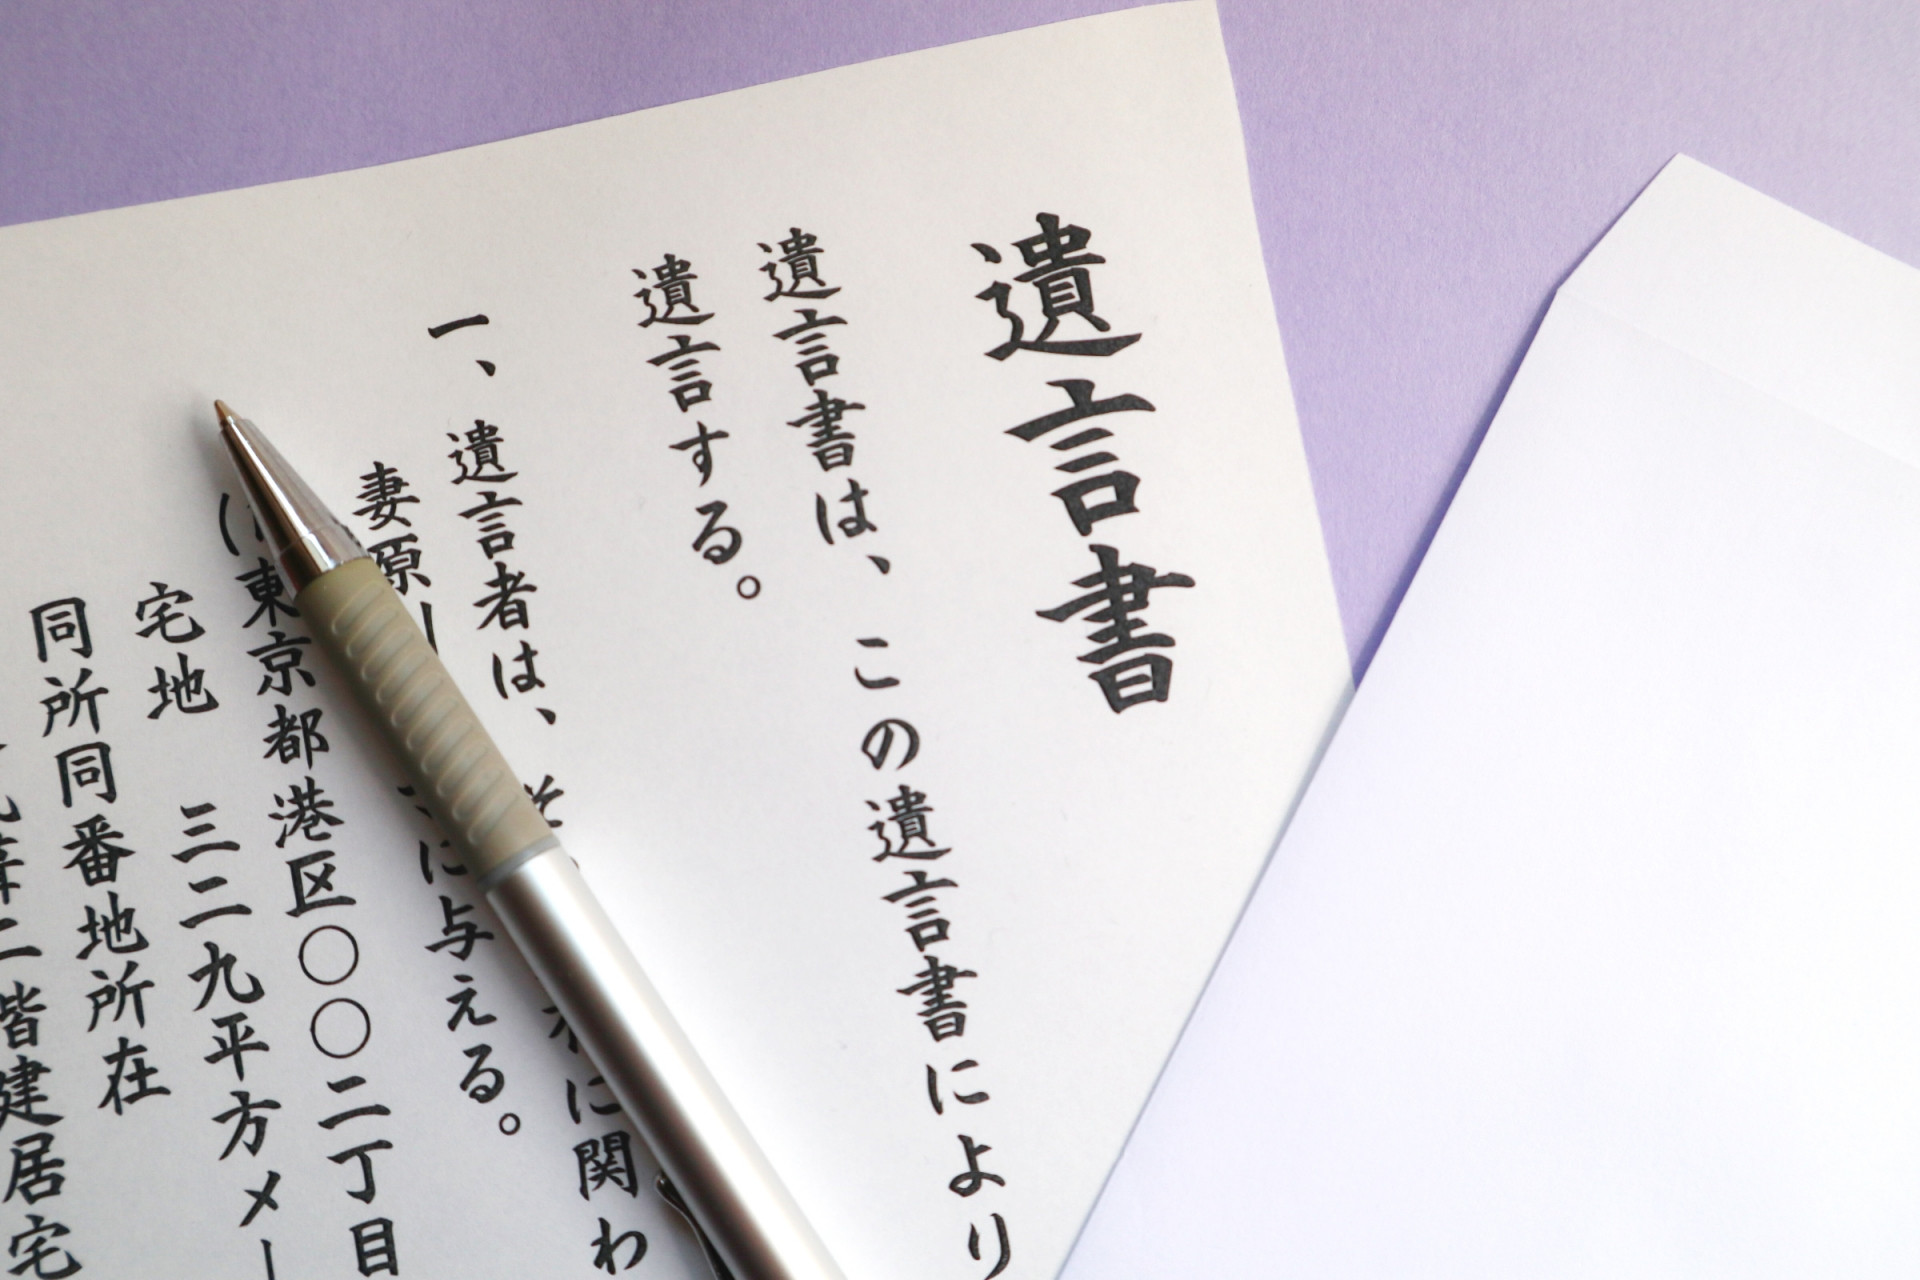 遺言書
遺言書は、この遺言書により
遺言する。
一、遺言者は、に関わ
妻原に与える。
東京都港区〇〇二丁目
宅地 三二九平方メー
同所同番地所在
二階建居宅